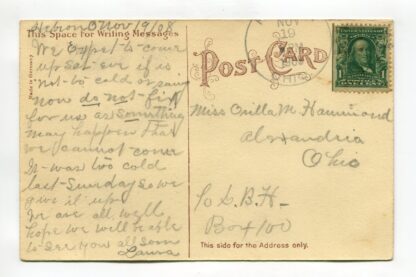 Hebron O Nov 19/08
This Space for Writing Messages
We expect to come
up Sat. eve if is
not to cold or rain
now do not fix
for us as something
may happen that
we cannot come
It was too cold
last Sunday so we
give it up
We are all well
hope we will be able
to see you all soon
Laura
Made in Germany
POST CARD
NOV
19
OHIO
Miss Orilla M. Hammond
Alexandria
Ohio
Box 100
This side for the Address only.